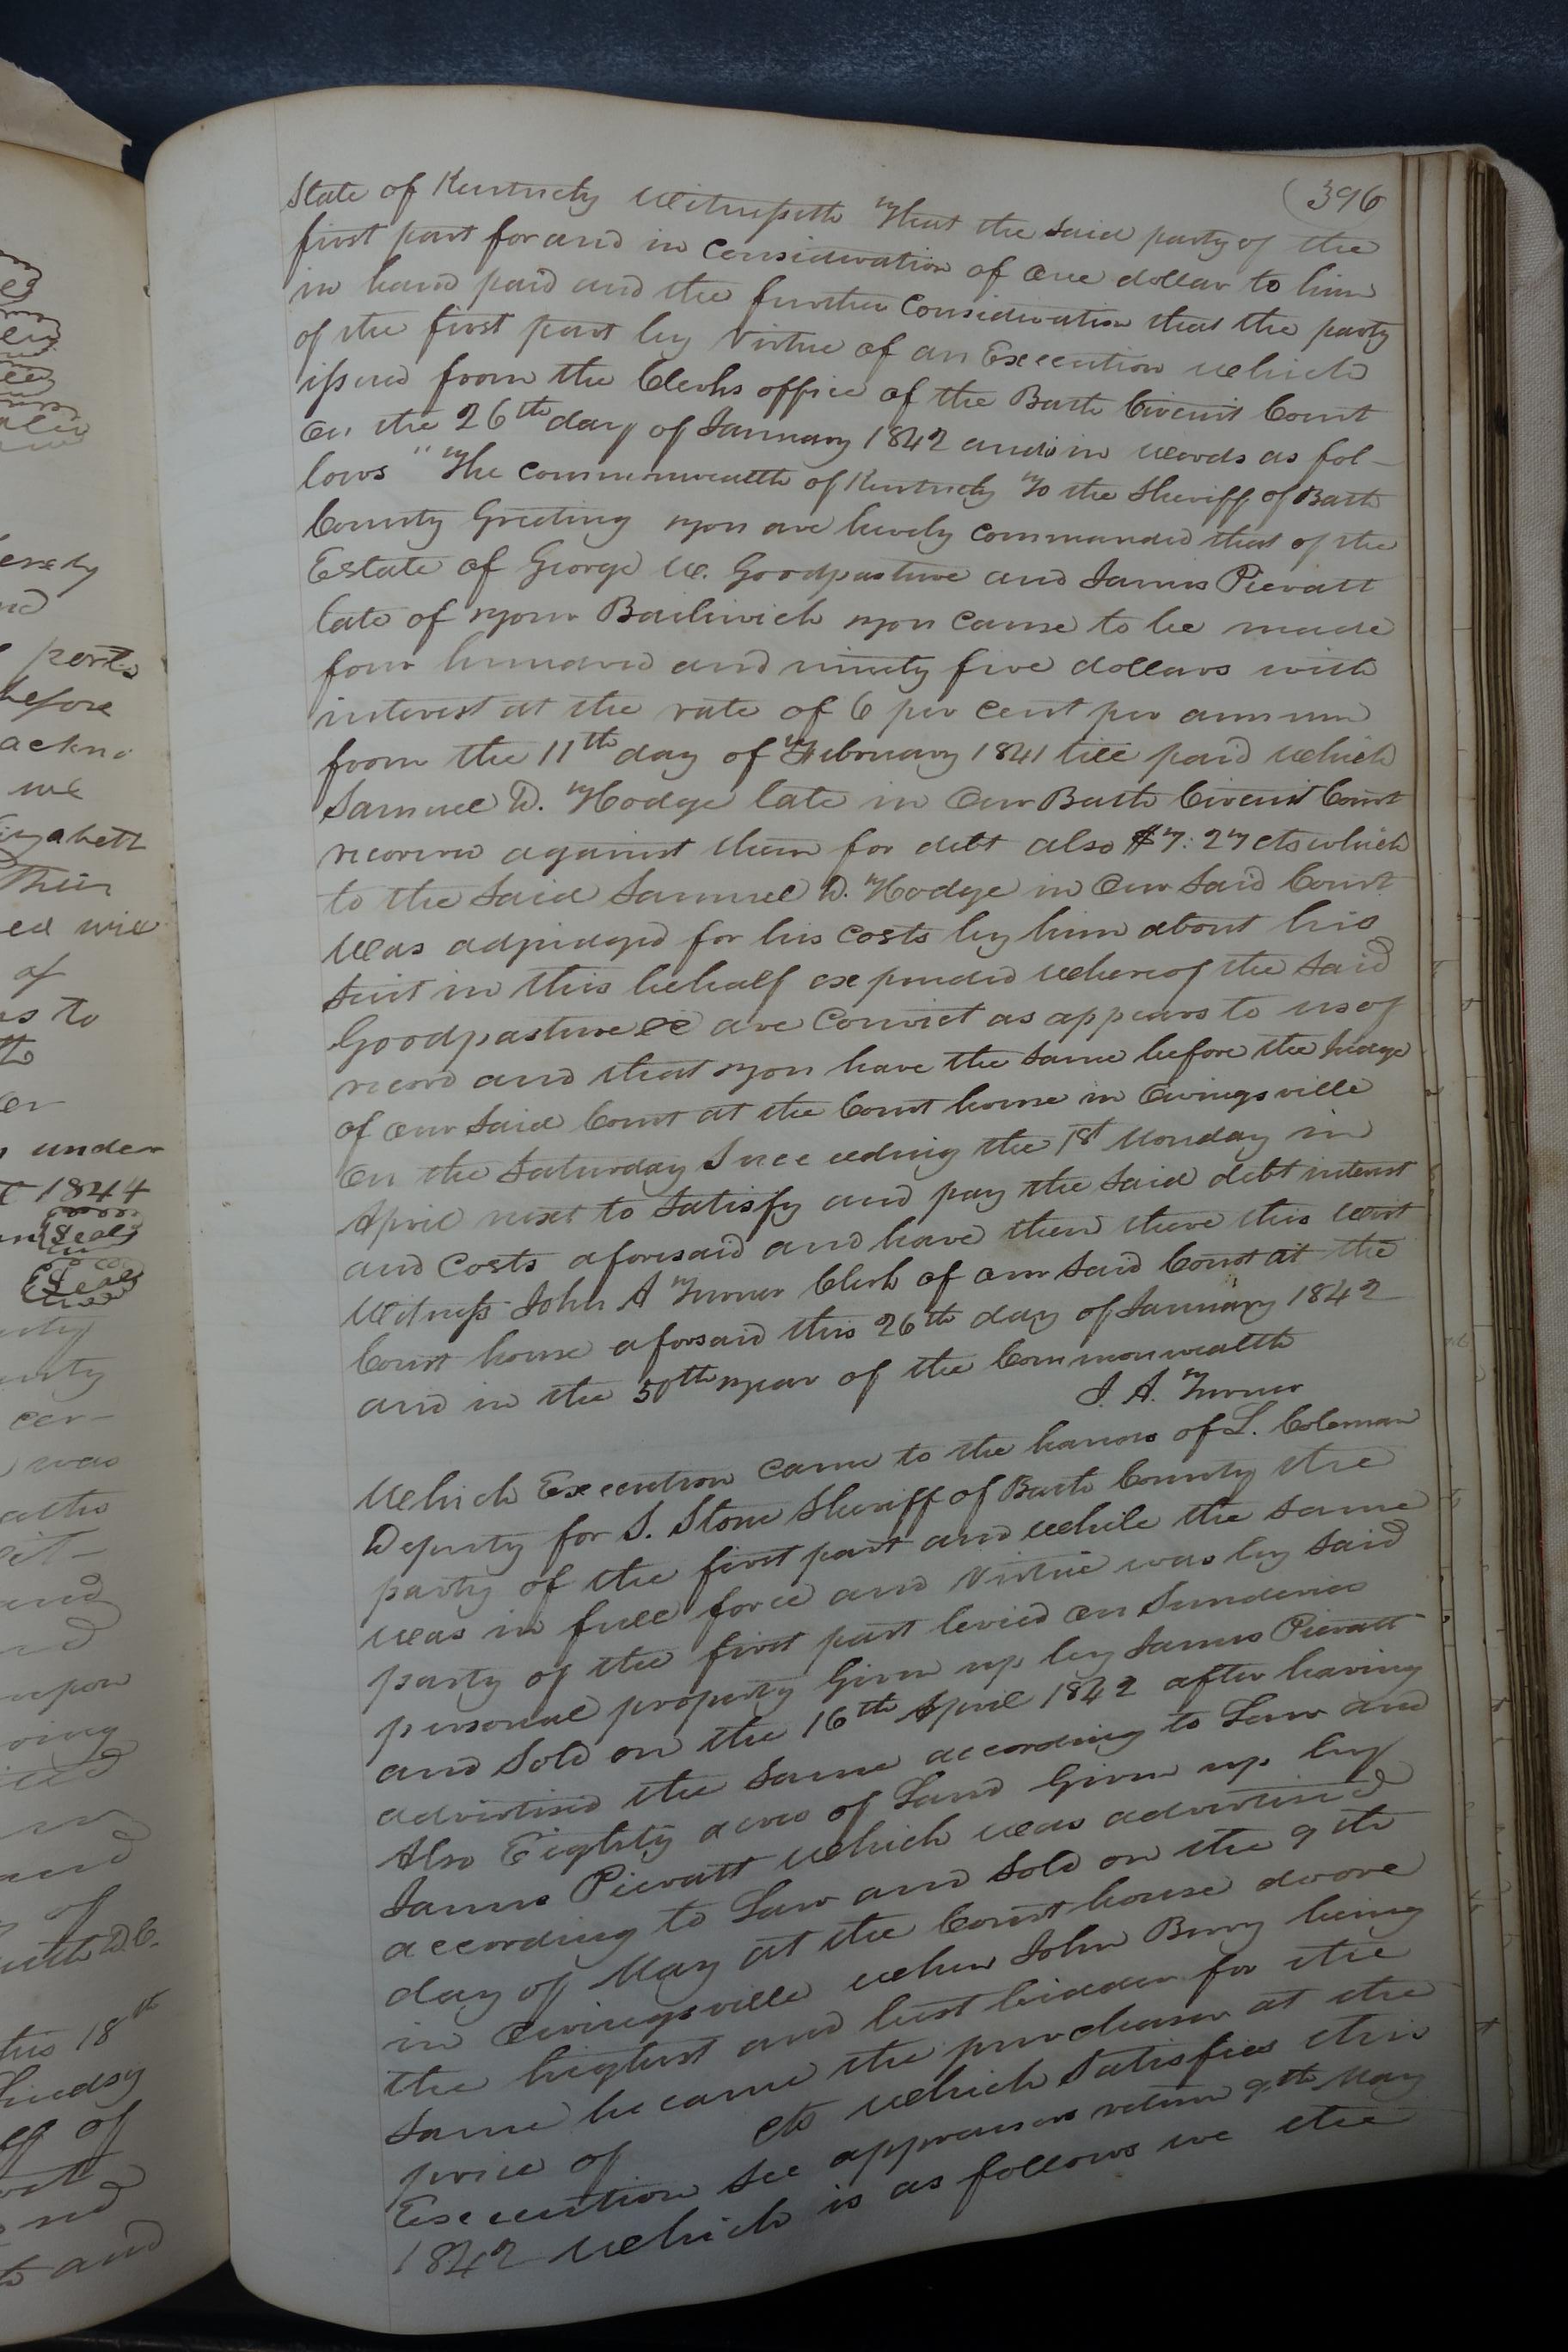 ereby
nd
perts
before
ackno
we
izabett
Their
ed wie
of
as to
er
under
1844
Seal
Seal
unty
cer-
was
and
upon
oving
and
of
D.C.
this 18th
Lindsy
of
and
to and
(396
State of Kentucky Witnesseth That the said party of the
first part for and in consideration of one dollar to him
in hand paid and the further consideration that the party
of the first part by Virtue of an Execution which
issued from the Clerks office of the Bath Circuit Court
on the 26th day of January 1842 and is in words as fol-
lows "The Commonwealth of Kentucky To the Sheriff of Bath
County Greeting you are hereby commanded that of the
Estate of George W. Goodpasture and James Pieratt
late of your Bailiwick you cause to be made
four hundred and ninety five dollars with
interest at the rate of 6 per cent per annum
from the 11th day of February 1841 till paid which
Samuel D. Hodge late in Our Bath Circuit Court
recovered against them for debt also $7.27 cts which
to the said Samuel D. Hodge in Our said Court
was adjudged for his costs by him about his
suit in this behalf expended whereof the said
Goodpasture &c are Convict as appears to us of
record and that you have the same before the Judge
of our said Court at the Court house in Owingsville
On the Saturday Succeeding the 1st Monday in
April next to Satisfy and pay the said debt interest
and Costs aforesaid and have then there this writ
Witness John A Turner Clerk of our said Court at the
Court house aforsaid this 26th day of January 1842
and in the 50th year of the Commonwealth
J. A. Turner
Which Execution came to the hands of L. Coleman
Deputy for S. Stone Sheriff of Bath County the
party of the first part and while the same
was in full force and Virtue was by said
party of the first part levied on Sunderies
personal property Given up by James Pieratt
and Sold on the 16th April 1842 after having
advertised the same according to Law and
Also Eighty acres of Land Given up by
James Pieratt which was advertised
according to Law and Sold on the 9th
day of May at the Court house doore
in Owingsville when John Berry being
the highest and best bidder for the
same became the purchaser at the
price of cts which Satisfies this
Execution See appraisers return 9th May
1842 which is as follows we the